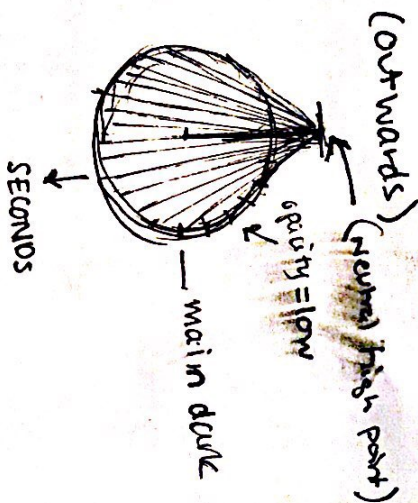 (outwards)
(neutral high point)
opacity = low
main dark
SECONDS